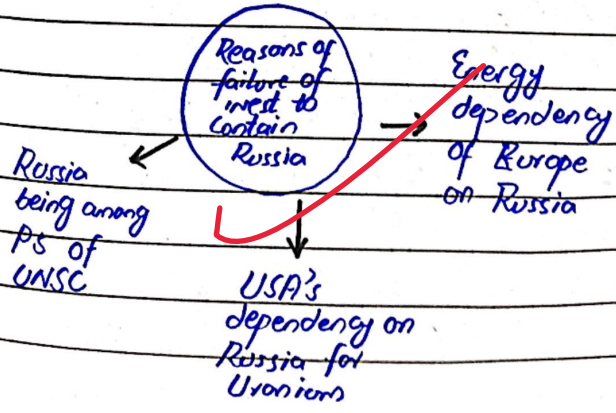 Reasons of
failure of
west to
Contain
Russia
Energy
dependency
of Europe
on Russia
Russia
being among
P5 of
UNSC
USA's
dependency on
Russia for
Uranium